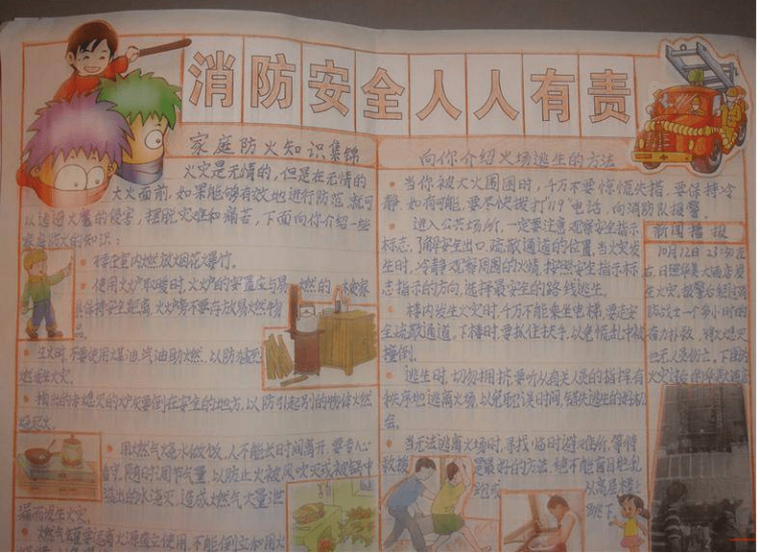 消防安全人人有责
家庭防火知识集锦
火灾是无情的,但是在无情的
大火面前,如果能够有效地进行防范,就可
以逃过火魔的侵害,摆脱灾难和痛苦,下面向你介绍一些
家庭防火的知识:
禁在室内燃放烟花爆竹。
使用火炉取暖时,火炉的安置应与易燃的
具保持安全距离,火炉旁不要存放易燃物
品。
生火时,不要使用煤油、汽油助燃,以防
火灾。
的炉灰要倒在安全的地方,以防引起别的物体燃
用燃气烧水做饭,人不能长时间离开,要专心
看守,随时调节气量,以防止火被风吹灭或被锅中
溢出的水浇灭,造成燃气大量泄
漏而发生火灾。
燃气要远离火源直立使用,不能倒立和用火
向你介绍火场逃生的方法
当你被大火围困时,千万不要惊慌失措,要保持冷
静,如有可能,要尽快拨打"119"电话,向消防队报警。
进入公共场所,一定要注意观察安全指示
标志,了解安全出口,疏散通道的位置,当火灾发
生时,冷静观察周围的火情,按照安全指示标
志指示的方向,选择最安全的路线逃生。
楼内发生火灾时,千万不能乘坐电梯,要走安
全疏散通道。下楼时,要扶住扶手,以免慌乱中被
撞倒。
逃生时,切勿拥挤,要听从有关人员的指挥有
秩序地逃离火场,以免耽误时间,错失逃生的好机
会。
当无法逃离火场时,寻找临时避难所,等待
救援是最好的方法,绝不能盲目乱
跑或从高层楼上
跳下。
新闻播报
10月12日23:50左
右,日照
生火灾,报警后经过消
防战士一个多小时的
奋力扑救,将火熄灭
无人员伤亡,
火灾